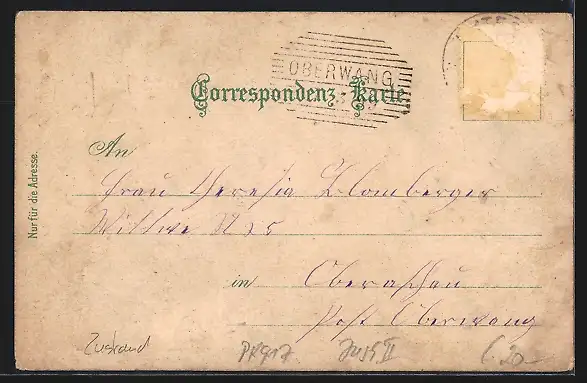 OBERWANG
Correspondenz-Karte
Nur für die Adresse.
An
Frau Theresia Blomberger
Wittwe N 25
in Oberaschau
Post Oberwang
Zustand PK917